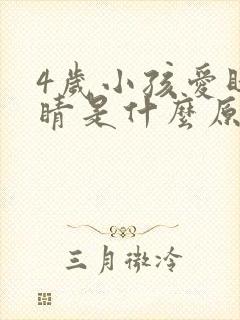 4歲小孩愛
睛是什麼原
三月微冷